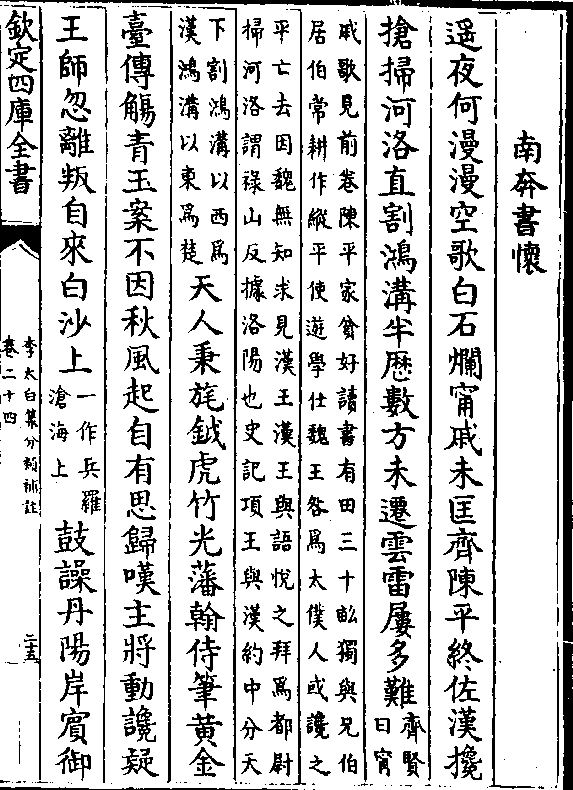 南奔書懷
遥夜何漫漫空歌白石爛甯戚未匡齊陳平終佐漢攙
搶掃河洛直割鴻溝半厯數方未遷雲雷屢多難齊賢
曰甯
戚歌見前卷陳平家貧好讀書有田三十畝獨與兄伯
居伯常耕作縱平使遊學仕魏王咎爲太僕人或讒之
平亡去因魏無知求見漢王漢王與語悦之拜爲都尉
掃河洛謂祿山反據洛陽也史記項王與漢約中分天
下割鴻溝以西爲
漢鴻溝以東爲楚
天人秉旄鉞虎竹光藩翰侍筆黄金
臺傳觴青玉案不因秋風起自有思歸嘆主將動讒疑
王師忽離叛自來白沙上一作兵羅
滄海上
鼓譟丹陽岸賓御
欽定四庫全書
李太白集分類補註
卷二十四